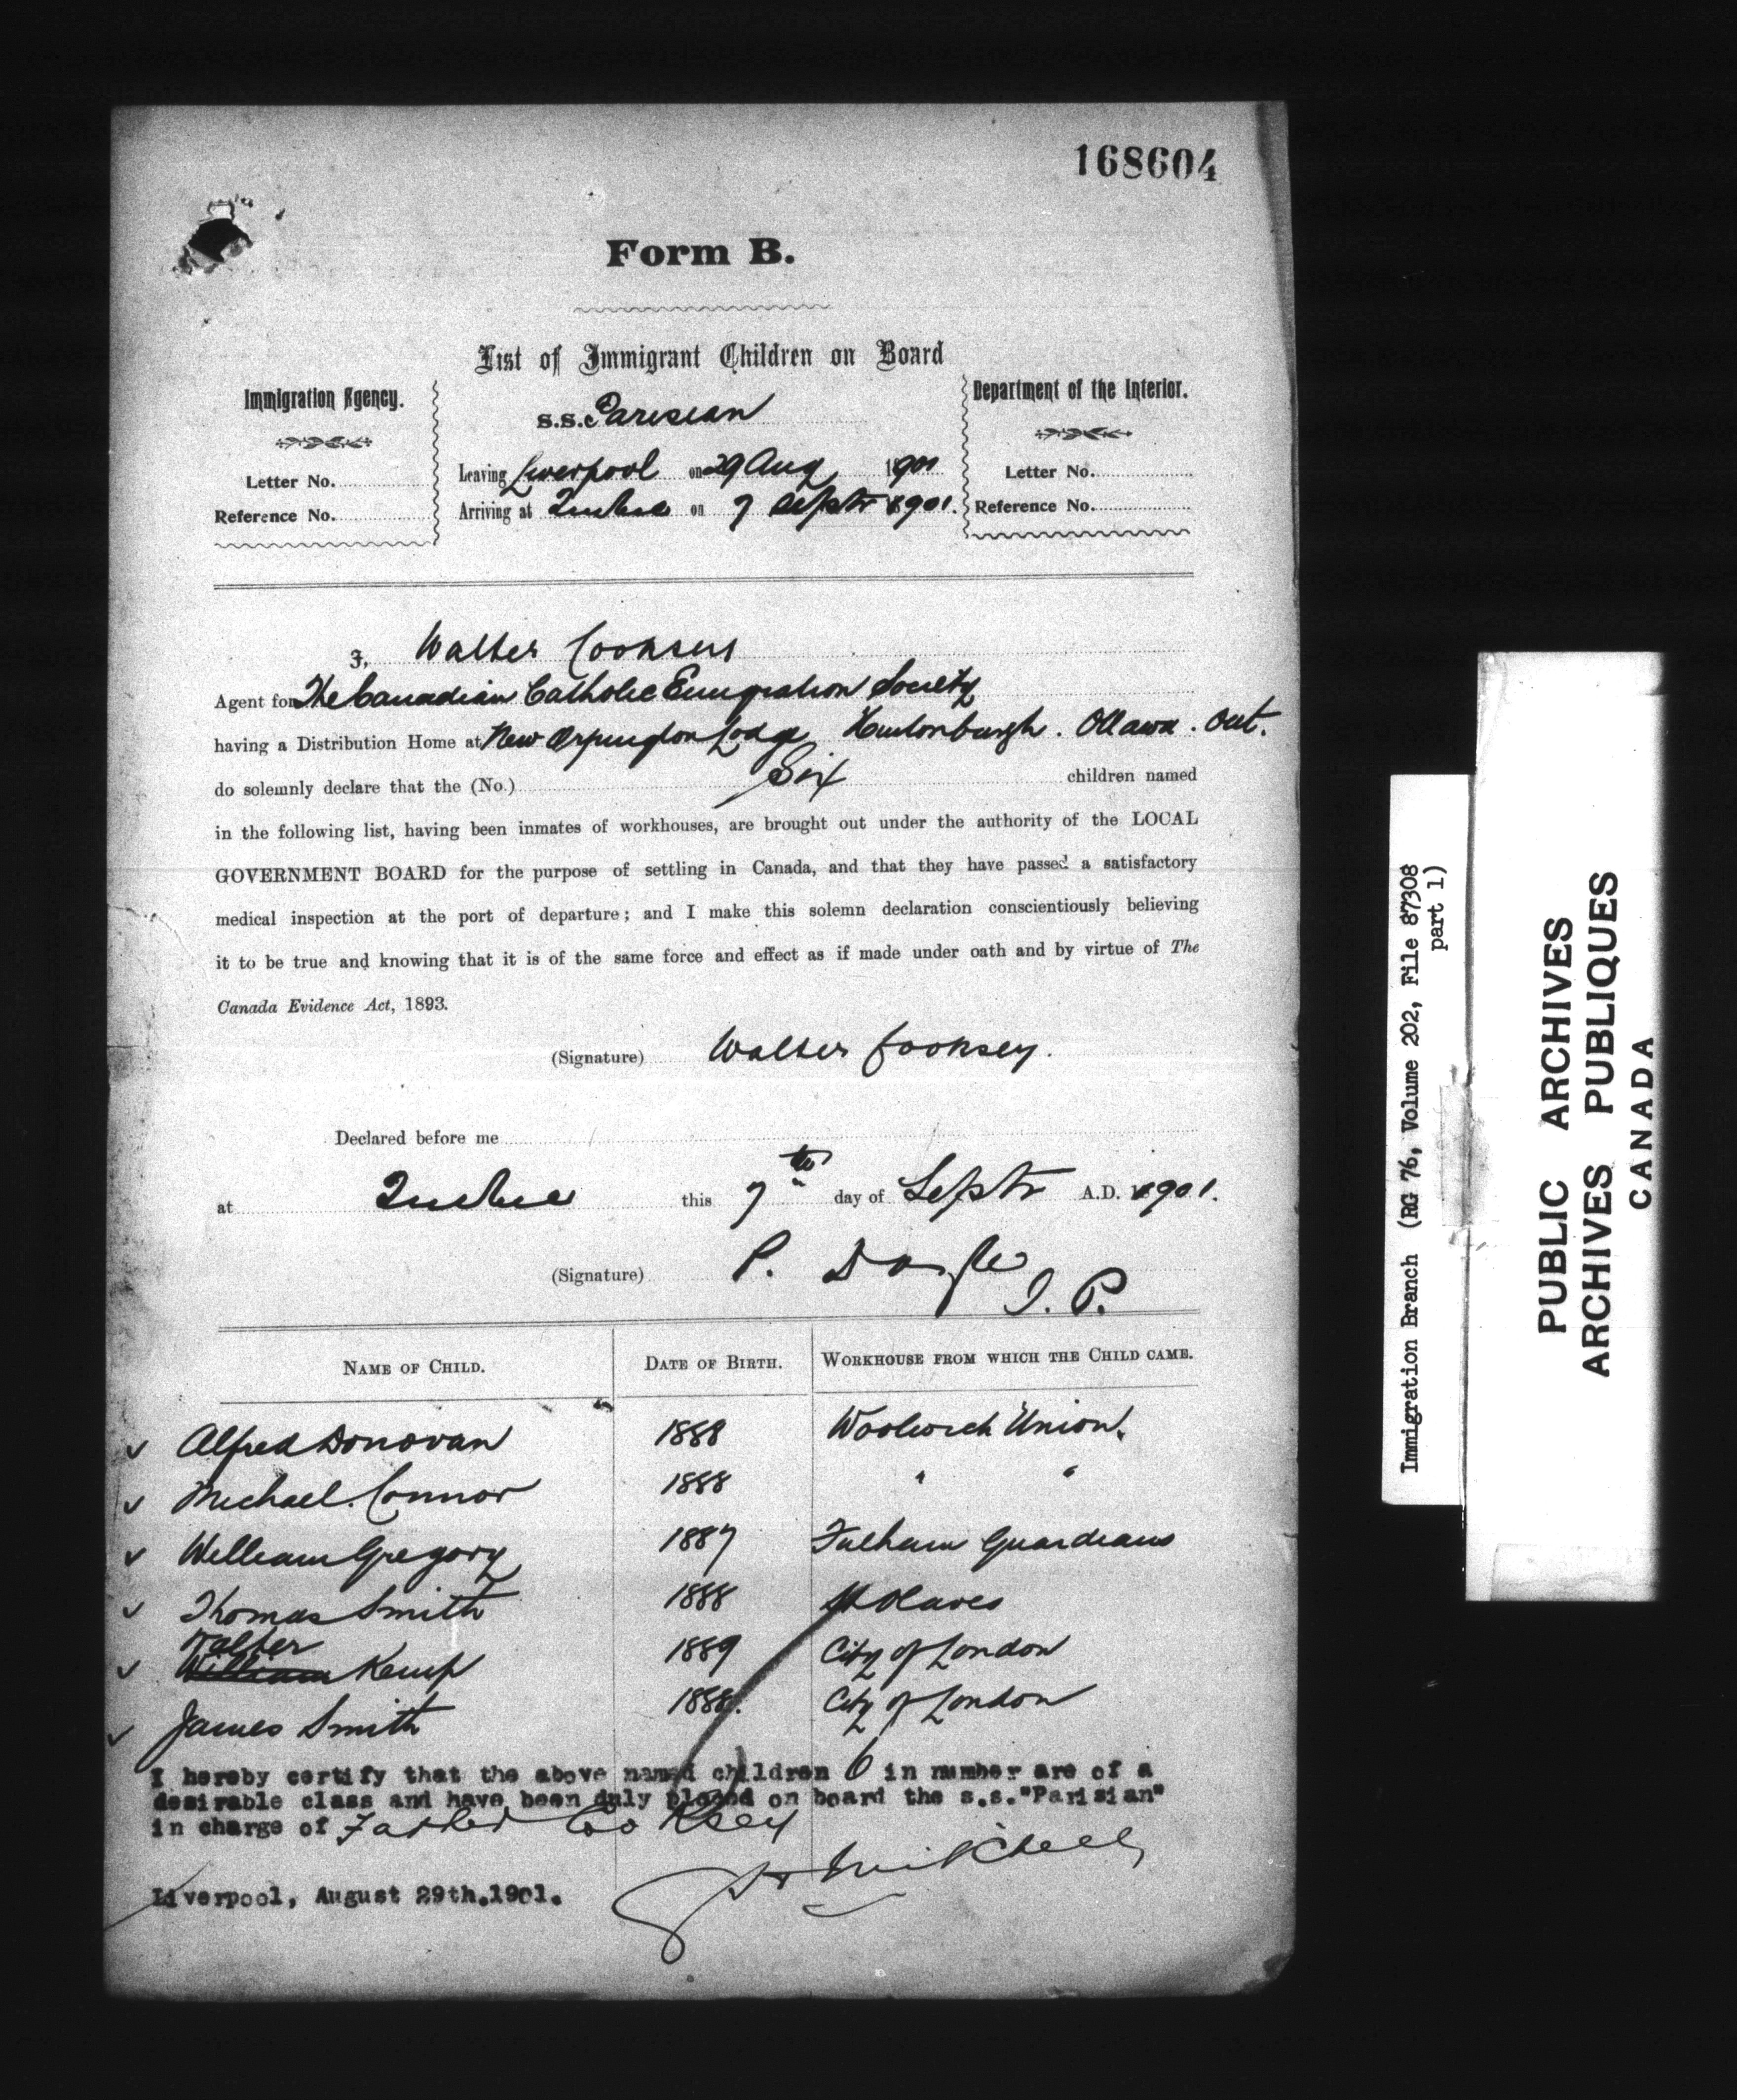 168604
Form B.
List of Immigrant Children on Board
Immigration Agency.
Letter No.
Reference No.
s.s. Parisian
Leaving Liverpool on 29 Aug 1901
Arriving at Quebec on 7 Septr 1901.
Department of the Interior.
Letter No.
Reference No.
I, Walter Cooksey
Agent for The Canadian Catholic Emigration Society
having a Distribution Home at New Orpington Lodge Hintonburgh. Ottawa. Ont.
do solemnly declare that the (No.) Six children named
in the following list, having been inmates of workhouses, are brought out under the authority of the LOCAL
GOVERNMENT BOARD for the purpose of settling in Canada, and that they have passed a satisfactory
medical inspection at the port of departure; and I make this solemn declaration conscientiously believing
it to be true and knowing that it is of the same force and effect as if made under oath and by virtue of The
Canada Evidence Act, 1893.
(Signature) Walter Cooksey.
Declared before me
at Quebec this 7th day of Septr A.D. 1901.
(Signature) P. Doyle
J. P.
NAME OF CHILD. DATE OF BIRTH. WORKHOUSE FROM WHICH THE CHILD CAME.
Alfred Donovan 1888 Woolwich Union.
Michael Connor 1888 " "
William Gregory 1887 Fulham Guardians
Thomas Smith 1888 St Olaves
Walter
William Kemp 1889 City of London
James Smith 1888. City of London
I hereby certify that the above named children 6 in number are of a
desirable class and have been duly placed on board the s.s."Parisian"
in charge of Father Cooksey
Mitchell
Liverpool, August 29th.1901.
Immigration Branch (RG 76, Volume 202, File 87308
part 1)
PUBLIC ARCHIVES
ARCHIVES PUBLIQUES
CANADA